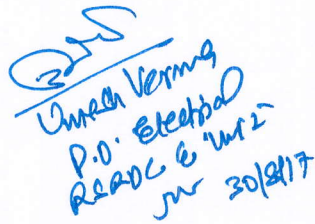 Umesh Verma
P.D. Electrical
RSRDC & Unit 2
30/8/17